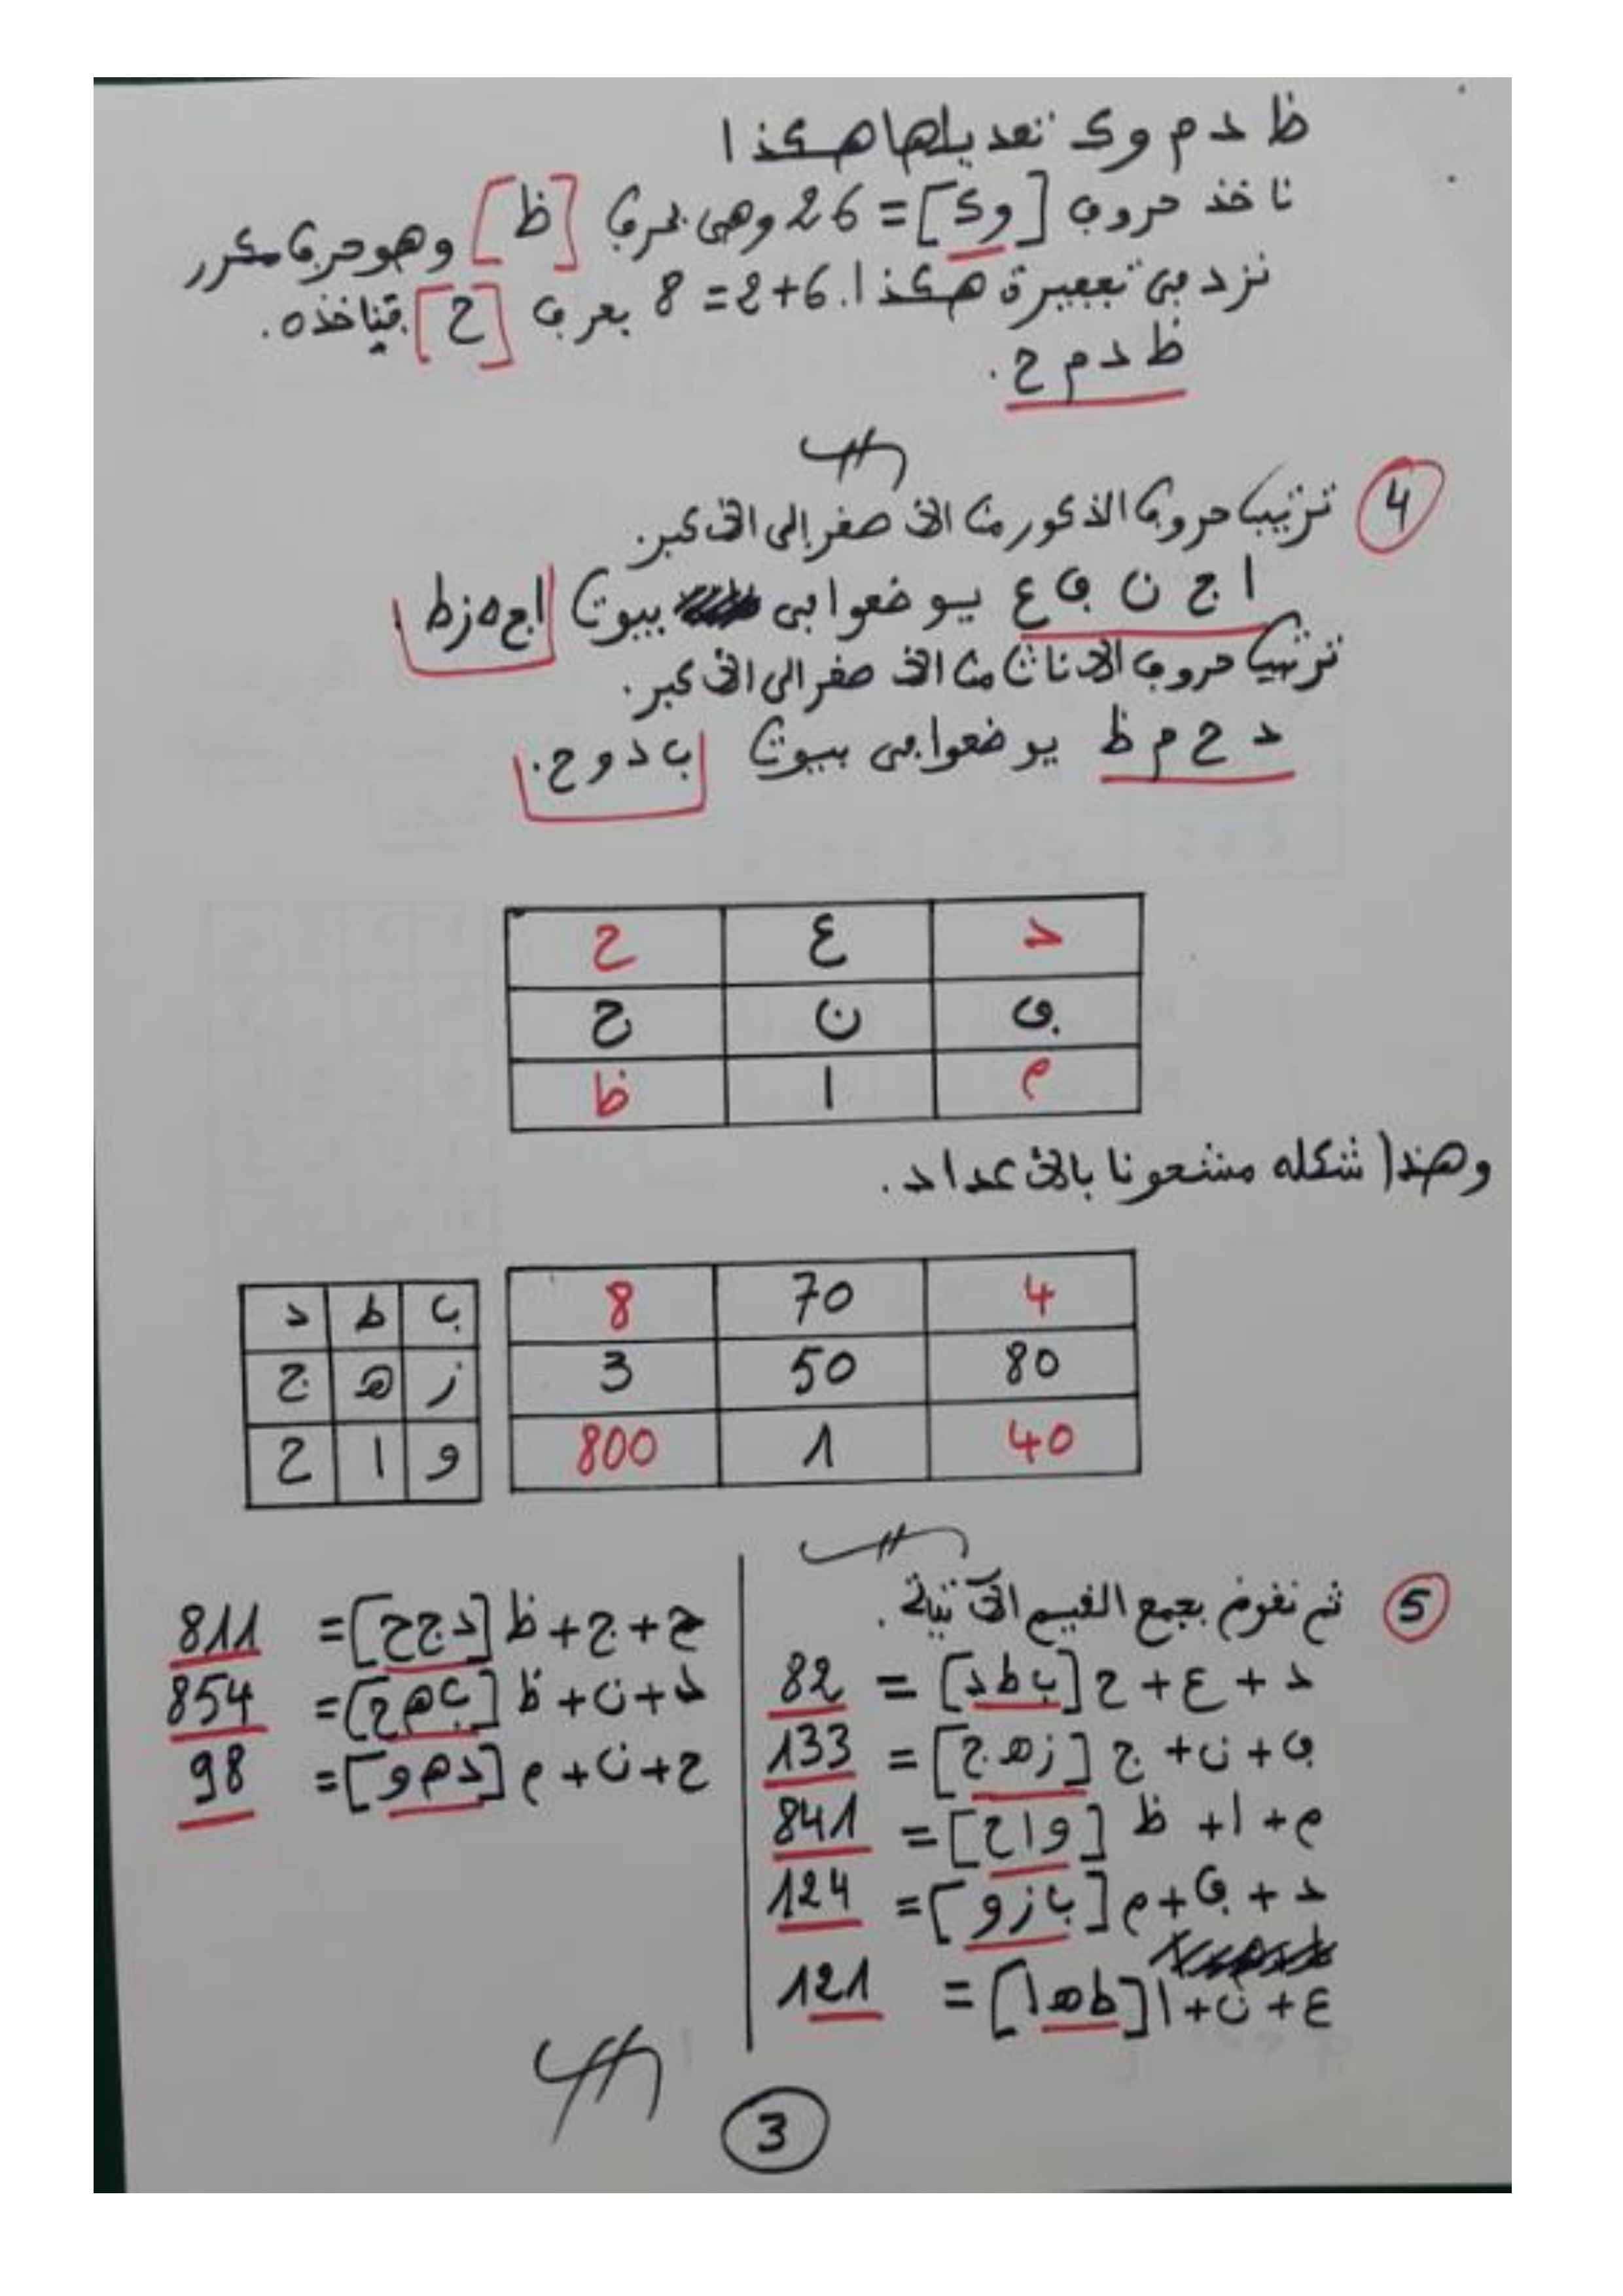 ظ د م وک تعديلها هكذا
ناخذ حروف [وک] = 26 وهى بحرف [ظ] وهو حرف مكرر
نزد في تعبيرة هكذا. 6+2 = 8 بعرف [ح] فناخذه.
ظ د م ح.
4 ترتيب حروف الذكور من الاصفر إلى الاكبر.
ا ج ن ف ع يوضعوا في بيوت اجهزط
ترتيب حروف الاناث من الاصفر الى الاكبر.
د ح م ظ يوضعوا في بيوت ب د و ح.
د ع ح
ف ن ج
م ا ظ
وهذا شكله مشعونا بالاعداد.
4 70 8
80 50 3
40 1 800
ب ط د
ز ه ج
و ا ح
5 ثم نقوم بجمع القيم الآتية.
د + ع + ح [ب ط د] = 82
ف + ن + ج [زهج] = 133
م + ا + ظ [واح] = 841
د + ف + م [بازو] = 124
ع + ن + ا [طها] = 121
ح + ج + ظ [دجح] = 811
د + ن + ظ [بهح] = 854
ح + ن + م [دهو] = 98
3